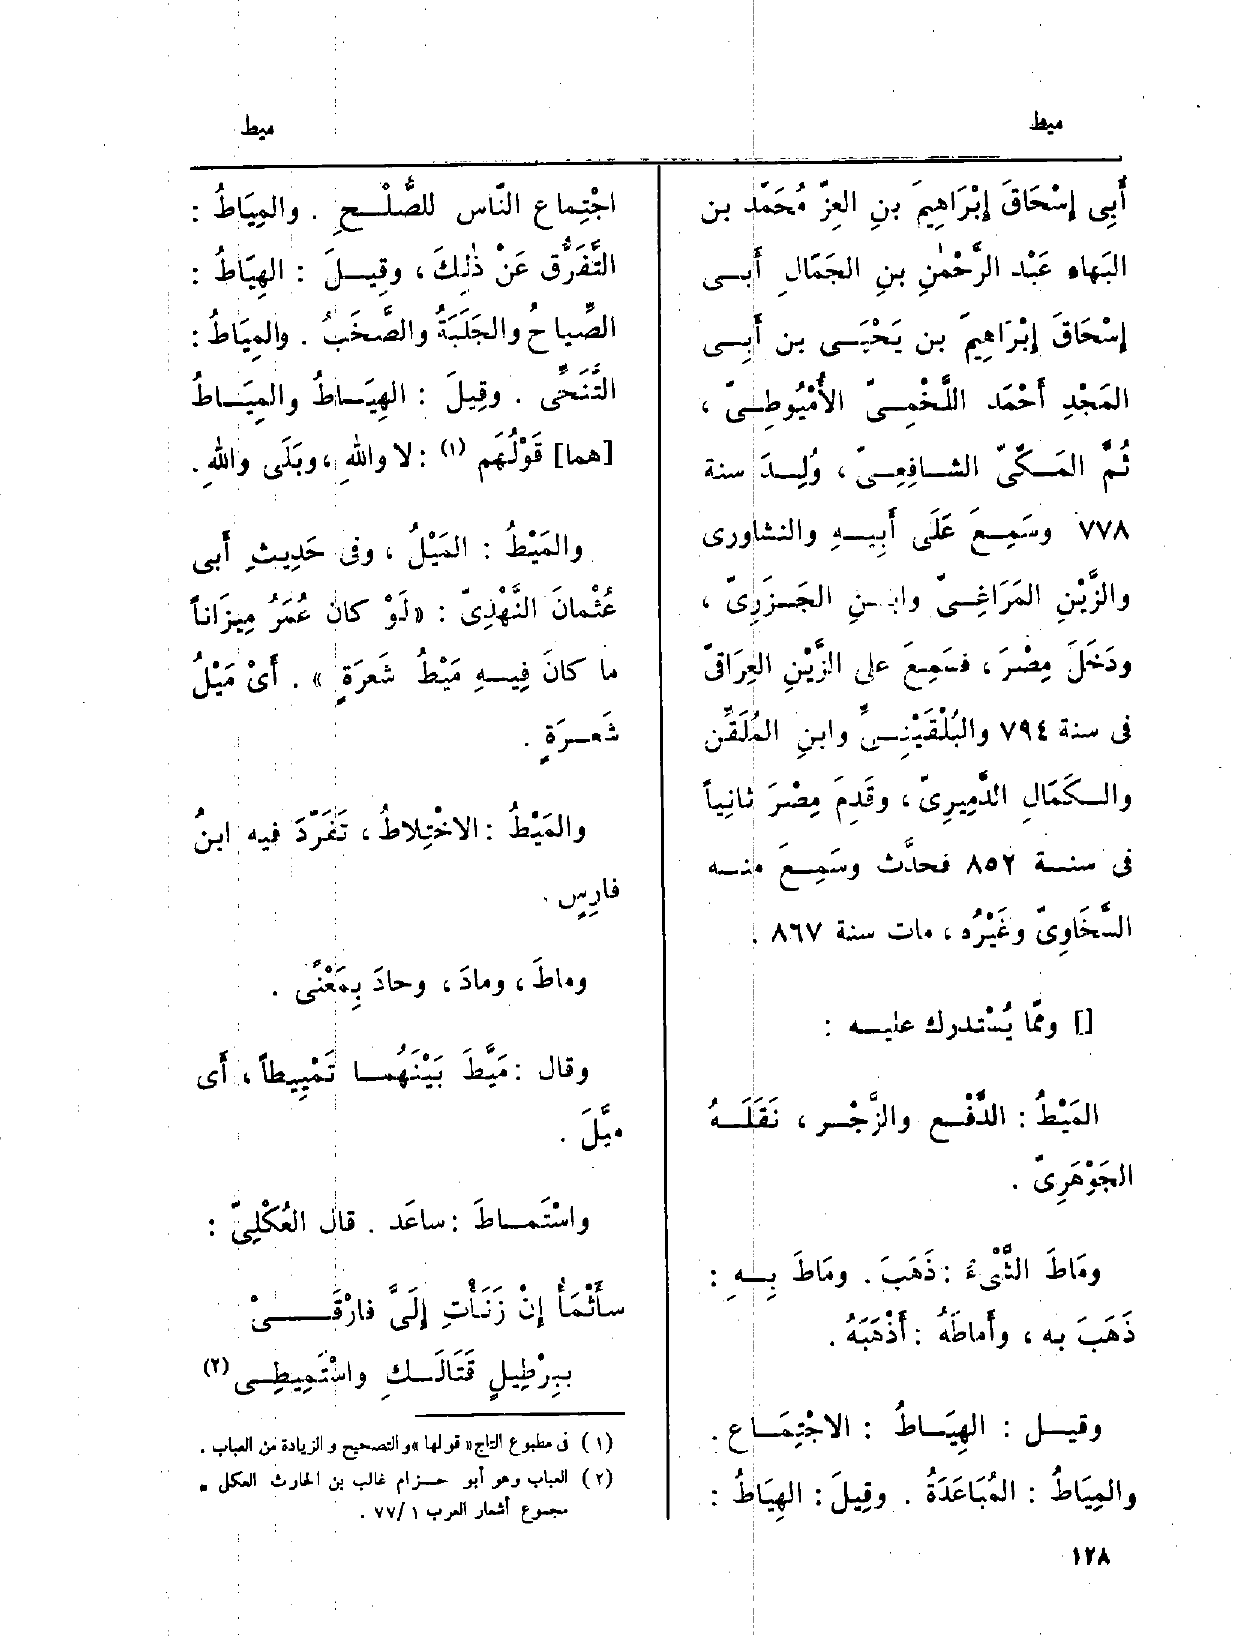 ميط
ميط
أَبِى إِسْحَاقَ إِبْرَاهِيمَ بنِ العِزِّ مُحَمَّد بن
البَهاء عَبْد الرَّحْمٰنِ بنِ الجَمَالِ أَبـى
إِسْحَاقَ إِبْرَاهِيمَ بن يَحْيَـى بن أَبِـى
المَجْدِ أَحْمَد اللَّخْمِـىّ الأُمْيُوطِـىّ ،
ثُمَّ المَـكِّىّ الشـافِعِـىّ ، وُلِـدَ سنة
٧٧٨ وسَمِـعَ عَلَى أَبِيـهِ والنشاورى
والزَّيْنِ المَرَاغِـىّ وابـنِ الجَـزَرِىّ ،
ودَخَلَ مِصْرَ ، فسَمِعَ على الزَّيْنِ العِرَاقىّ
فى سنة ٧٩٤ والبُلْقَيْنِـىِّ وابنِ المُلَقِّن
والـكَمَالِ الدَّمِيرِىّ ، وقَدِمَ مِصْرَ ثانِياً
فى سنـة ٨٥٢ فحدَّث وسَمِـعَ منـه
السَّخَاوِىّ وغَيْرُه ، مات سنة ٨٦٧ .
[] وممّا يُسْتدرك عليـه :
المَيْطُ : الدَّفْـع والزَّجْـر ، نَقَلَـهُ
الجَوْهَرِىّ .
ومَاطَ الشَّىْءُ : ذَهَبَ . ومَاطَ بِـهِ :
ذَهَبَ به ، وأَماطَهُ : أَذْهَبَهُ .
وقيـل : الهِيَـاطُ : الاجْتِمَـاع .
والمِياطُ : المُبَاعَدَةُ . وقِيلَ : الهِيَاطُ :
اجْتِماع النَّاس للصُّلْـحِ . والمِيَاطُ :
التَّفَرُّق عَنْ ذٰلِكَ ، وقِيـلَ : الهِيَاطُ :
الصِّياحُ والجَلَبَةُ والصَّخَبُ . والمِيَاطُ :
التَّنَحِّى . وقِيلَ : الهِيَـاطُ والمِيَـاطُ
[هما] قَوْلُهَم (١) : لا واللهِ ، وبَلَى واللهِ .
والمَيْطُ : المَيْلُ ، وفى حَدِيثِ أَبى
عُثْمانَ النَّهْدِىّ : «لَوْ كانَ عُمَرُ مِيزَاناً
ما كانَ فِيـهِ مَيْطُ شَعرَةٍ » . أَىْ مَيْلُ
شَعـرَةٍ .
والمَيْطُ : الاخْتِلاطُ ، تَفَرَّدَ فيه ابنُ
فارِسٍ .
وماطَ ، ومادَ ، وحادَ بِمَعْنًى .
وقال : مَيَّطَ بَيْنَهُمـا تَمْيِيطاً ، أَى
ميَّلَ .
واسْتَمـاطَ : ساعَد . قال العُكْلِىّ :
سأَثْمَأُ إِنْ زَنَأْتِ إِلَىَّ فارْقَـىْ
بِبِرْطِيلٍ قَتَالَـكِ واسْتَمِيطِـى (٢)
(١) فى مطبوع التاج « قولها » والتصحيح والزيادة من العباب .
(٢) العباب وهو أبو حـزام غالب بن الحارث العكلى .
مجموع أشعار العرب ١ /٧٧ .
١٢٨